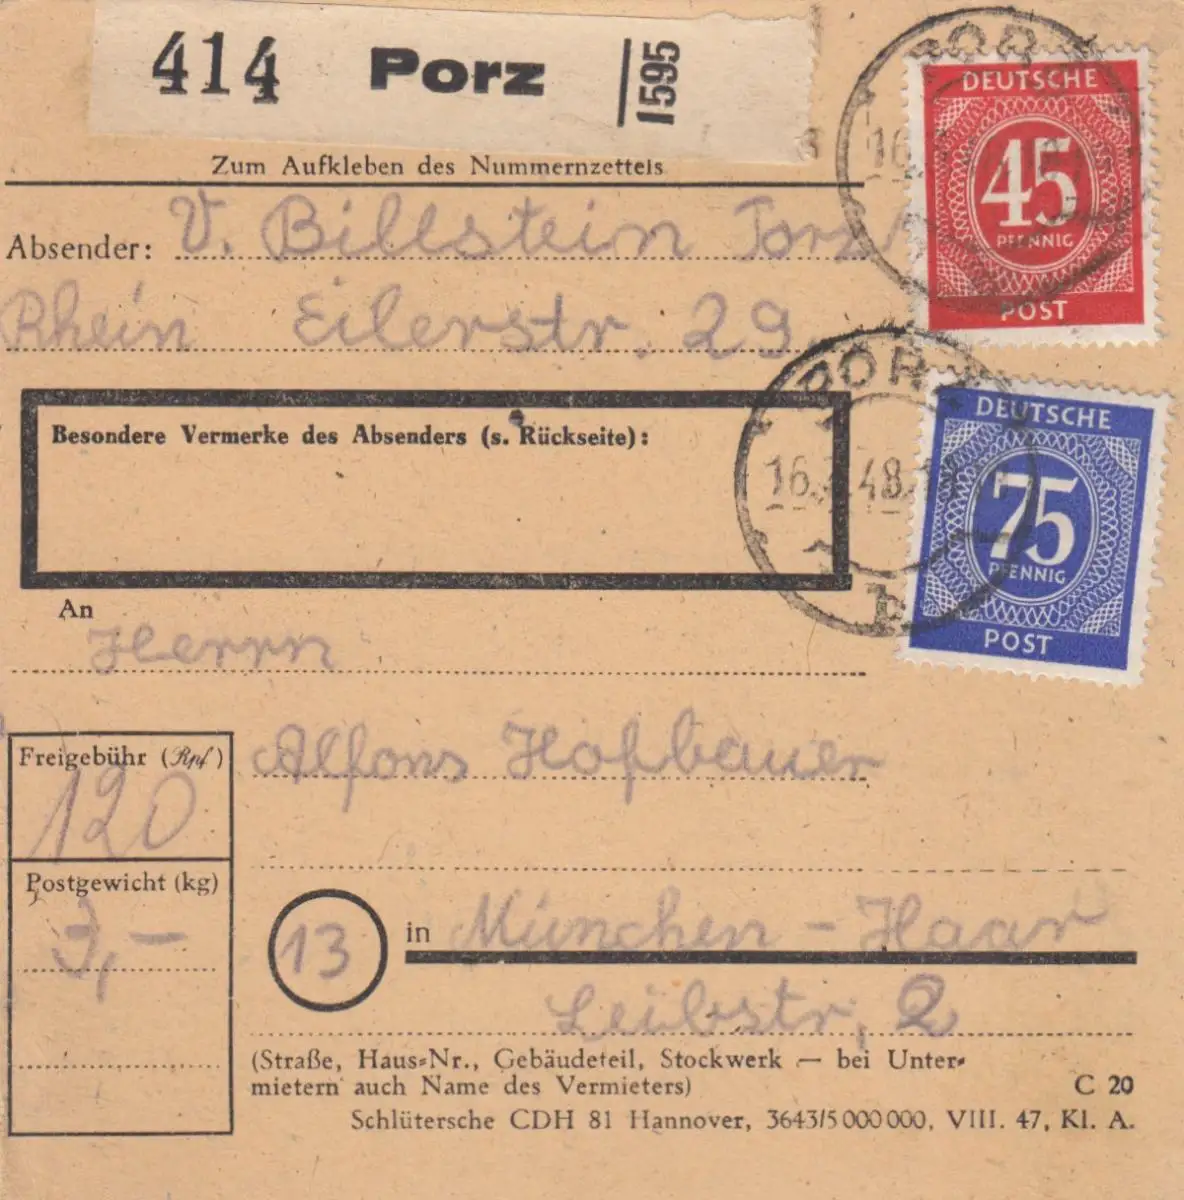 414 Porz 1595
Zum Aufkleben des Nummernzettels
Absender: V. Billstein Porz
Rhein Eilerstr. 29.
Besondere Vermerke des Absenders (s. Rückseite):
An
Herrn
Freigebühr (Rpf)
120
Alfons Hofbauer
Postgewicht (kg)
3,—
13 in München - Haar
Leibstr, 2
(Straße, Haus-Nr., Gebäudeteil, Stockwerk — bei Unter-
mietern auch Name des Vermieters)
C 20
Schlütersche CDH 81 Hannover, 3643/5 000 000, VIII. 47, Kl. A.
DEUTSCHE
45
PFENNIG
POST
DEUTSCHE
75
PFENNIG
POST
b